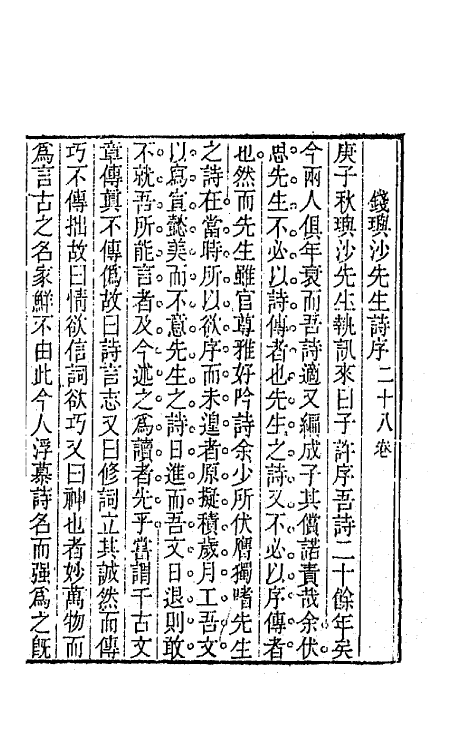 錢璵沙先生詩序 二十八卷
庚子秋璵沙先生執訊來曰子許序吾詩二十餘年矣
今兩人俱年衰而吾詩適又編成子其償諾責哉余伏
思先生不必以詩傳者也先生之詩又不必以序傳者
也然而先生雖官尊雅好吟詩余少所伏膺獨嗜先生
之詩在當時所以欲序而未遑者原擬積歲月工吾文
以寫宣懿美而不意先生之詩日進而吾文日退則敢
不就吾所能言者及今述之爲讀者先乎嘗謂千古文
章傳眞不傳僞故曰詩言志又曰修詞立其誠然而傳
巧不傳拙故曰情欲信詞欲巧又曰神也者妙萬物而
爲言古之名家鮮不由此今人浮慕詩名而强爲之旣